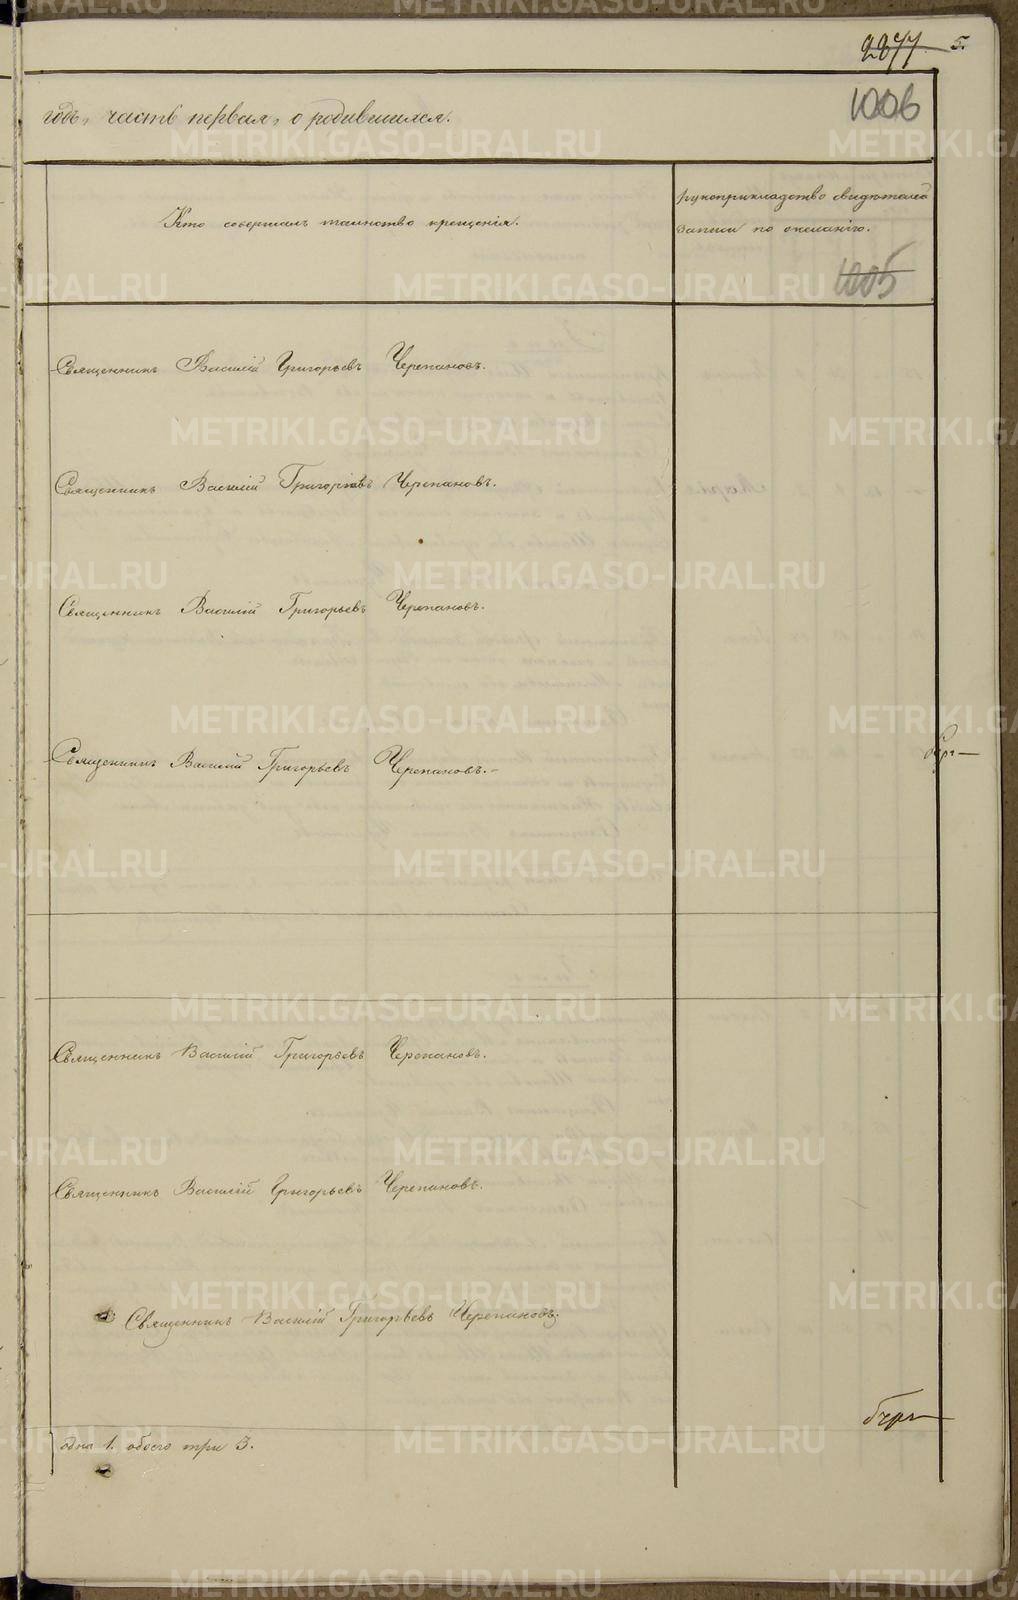 2877 5.
годъ, часть первая, о родившихся.
1006
Кто совершалъ таинство крещенія.
рукоприкладство свидѣтелей
записи по желанію.
1005
Священникъ Василій Григорьевъ Черепановъ.
Священникъ Василій Григорьевъ Черепановъ.
Священникъ Василій Григорьевъ Черепановъ.
Священникъ Василій Григорьевъ Черепановъ.
Священникъ Василій Григорьевъ Черепановъ.
Священникъ Василій Григорьевъ Черепановъ.
Священникъ Василій Григорьевъ Черепановъ.
одна 1. обоего три 3.
METRIKI.GASO-URAL.RU